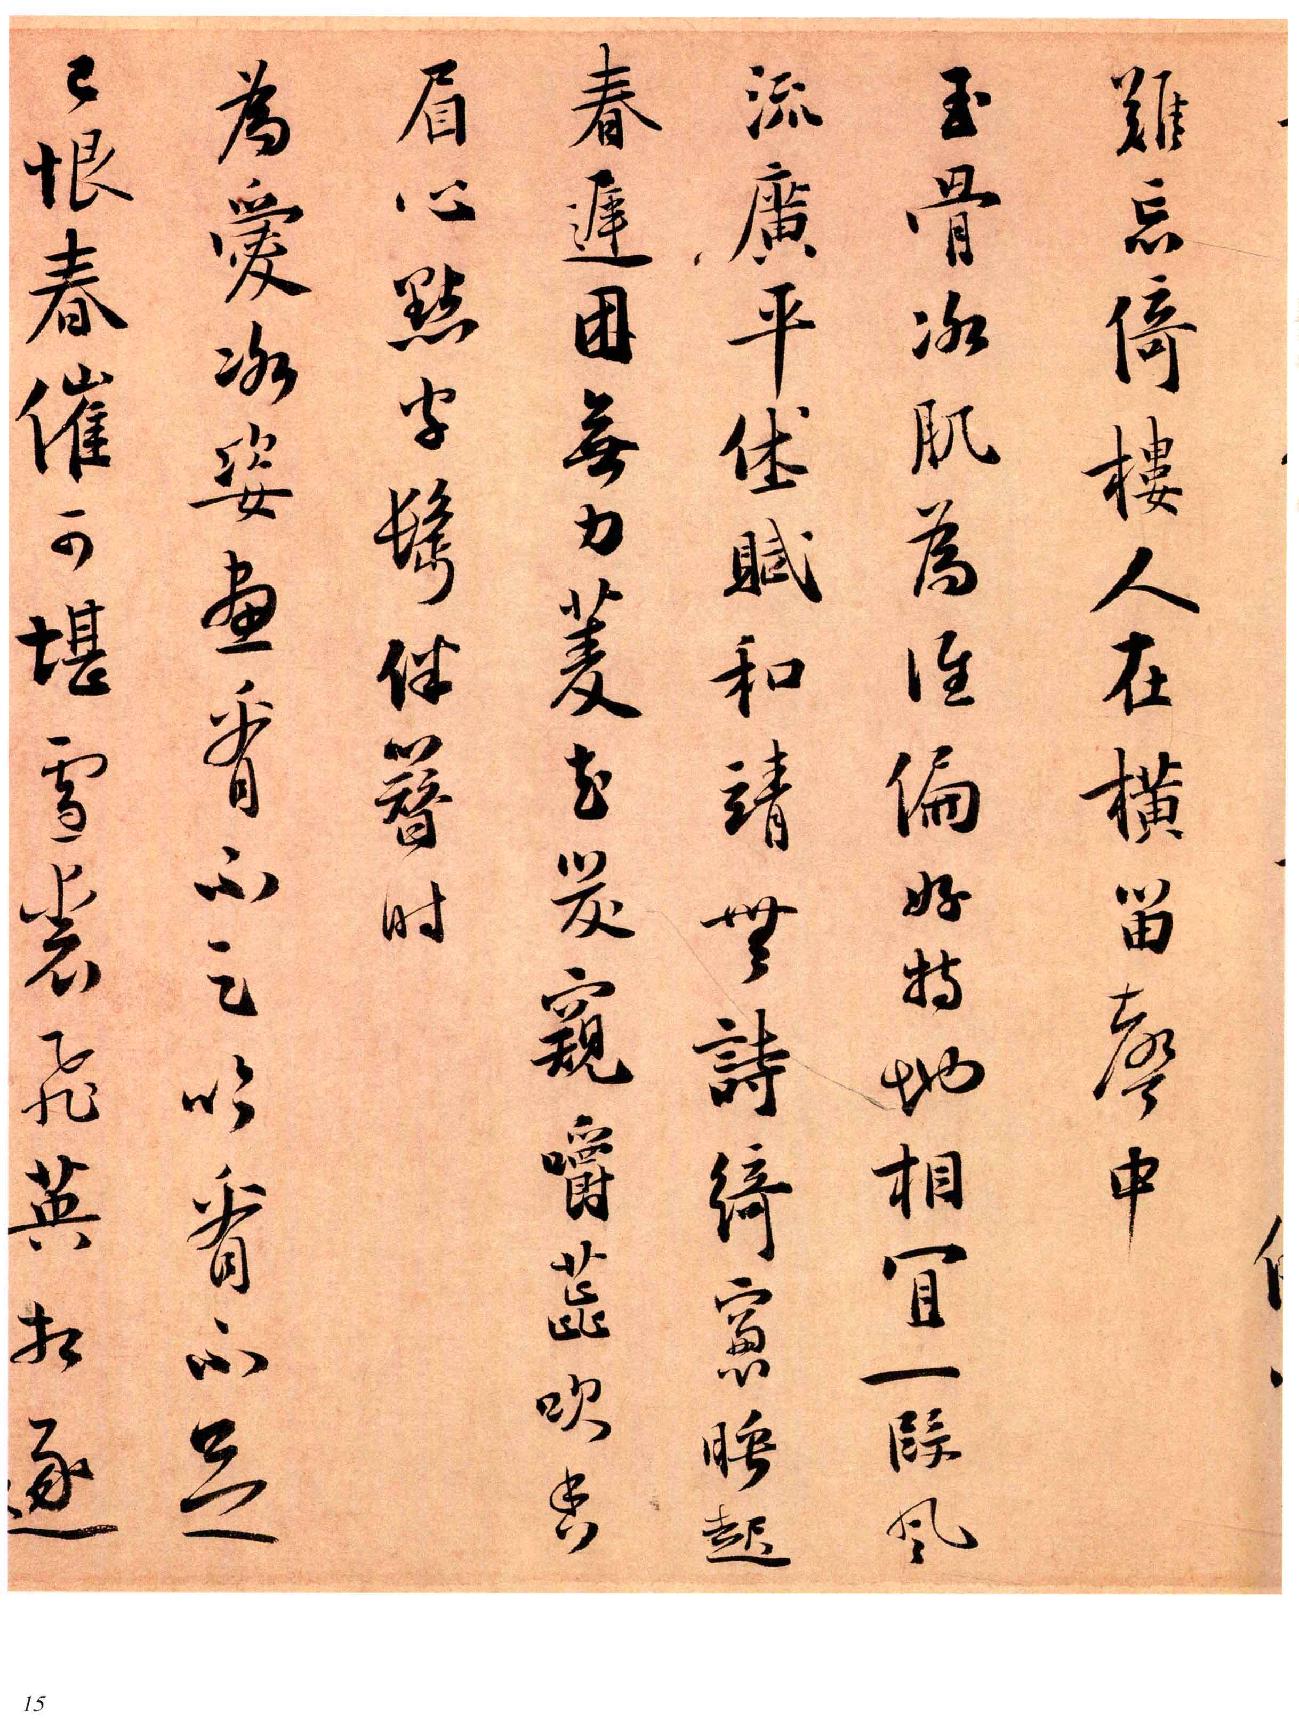 難忘倚樓人在橫笛聲中
玉骨冰肌為誰偏好特地相宜一段風
流廣平休賦和靖無詩綺窗睡起
春遲困無力菱花笑窺嚼蕊吹香
眉心點處鬢畔簪時
為愛冰姿畫看不足吟看不足
已恨春催可堪雪裏飛英相逐
15